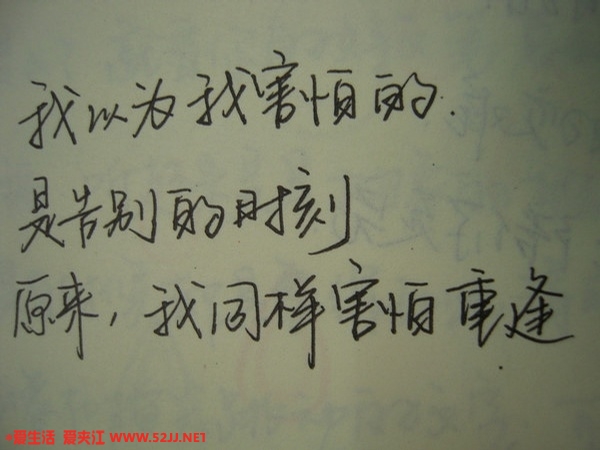 我以为我害怕的.
是告别的时刻
原来，我同样害怕重逢.
•爱生活 爱夹江 WWW.52JJ.NET